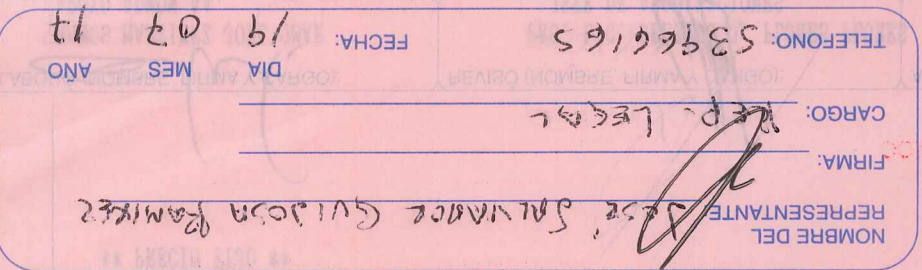 NOMBRE DEL
REPRESENTANTE JOSE SALVADOR QUIJOSA RAMIREZ
FIRMA:
CARGO: REP. LEGAL
DIA MES AÑO
TELEFONO: 53966165 FECHA: 19 07 17